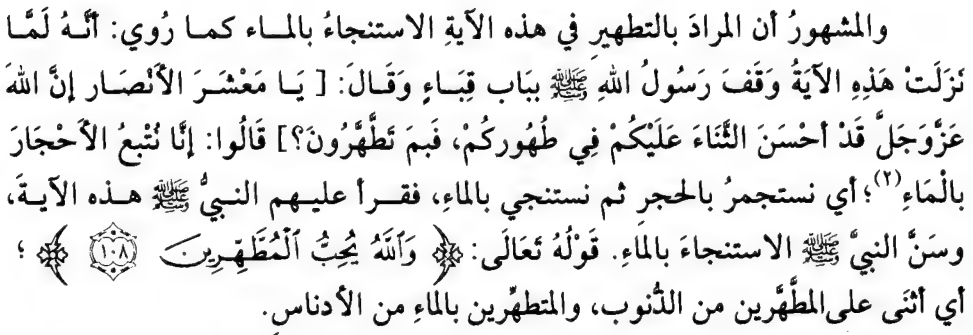 والمشهورُ أن المرادَ بالتطهيرِ في هذه الآيةِ الاستنجاءُ بالماء كما رُوي: أنَّهُ لَمَّا
نَزَلَتْ هَذِهِ الآيَةُ وَقَفَ رَسُولُ اللهِ ﷺ ببَاب قِبَاءٍ وَقَالَ: [ يَا مَعْشَرَ الأَنْصَار إنَّ اللهَ
عَزَّوَجَلَّ قَدْ أحْسَنَ الثَّنَاءَ عَلَيْكُمْ فِي طُهُوركُمْ، فَبمَ تَطَّهَّرُونَ؟] قَالُوا: إنَّا نُتْبعُ الأَحْجَارَ
بالْمَاءِ(٢)؛ أي نستجمرُ بالحجرِ ثم نستنجي بالماءِ، فقرأ عليهم النبيُّ ﷺ هذه الآيةَ،
وسَنَّ النبيُّ ﷺ الاستنجاءَ بالماءِ. قَوْلُهُ تَعَالَى: ﴿ وَٱللَّهُ يُحِبُّ ٱلْمُطَّهِّرِينَ ١٠٨ ﴾ ؛
أي أثنَى على المطَّهَّرين من الذُّنوب، والمتطهِّرين بالماءِ من الأدناس.